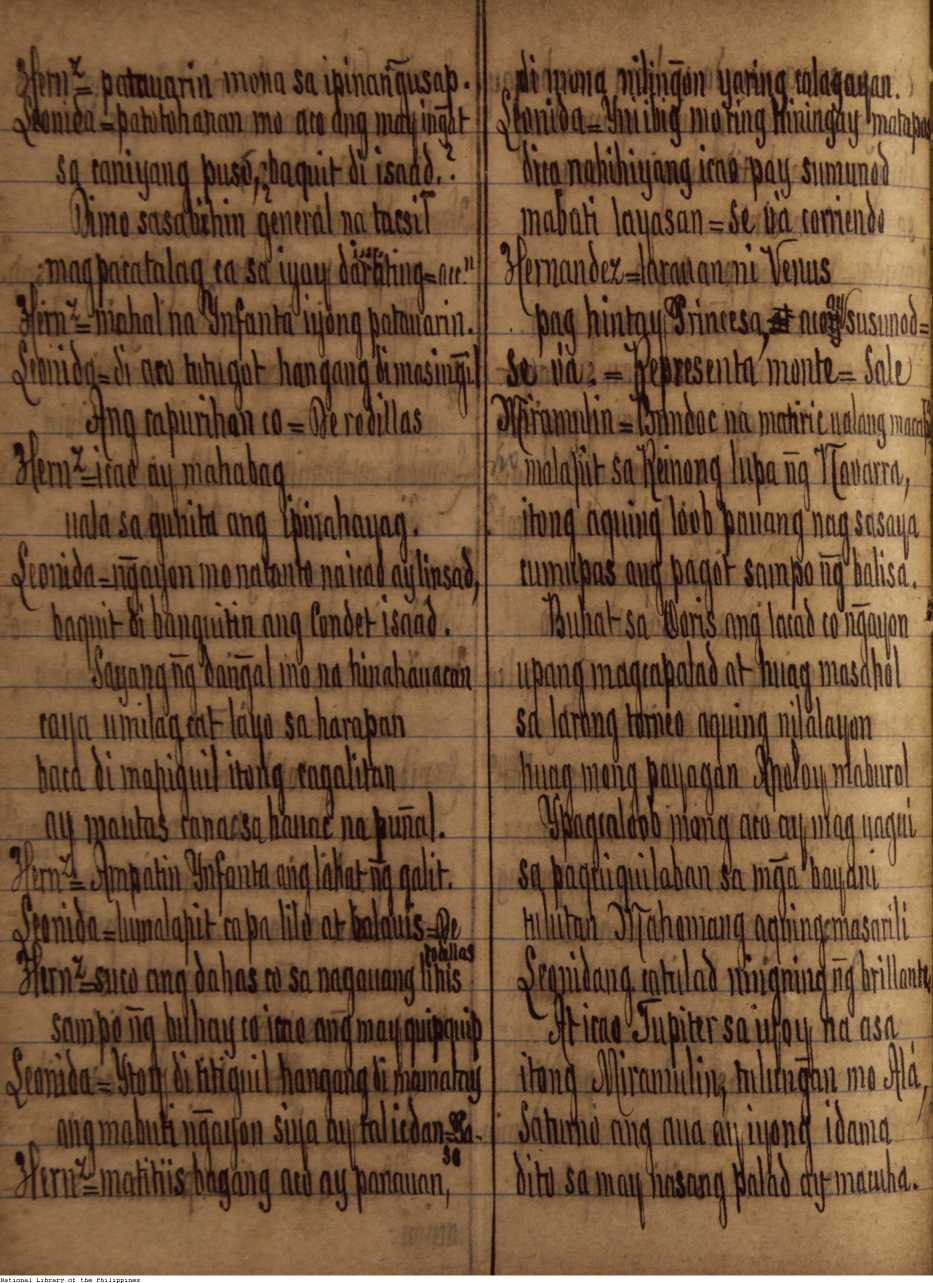 Hernz= patauarin mona sa ipinan̄gusap.
Leonida= patotohanan mo aco ang may in̄gat
sa caniyang pusó, ? baquit di isaád. ?
Dimo sasabihin general na tacsil
magpacatalag ca sa iyay darating= acc.n
Hernz= mahal na Ynfanta iyong patauarin.
Leonida= di aco tutugot hangang di masin̄gil
Ang capurihan co= De rodillas
Hernz= icao ay mahabag
uala sa gunita ang ipinahayag.
Leonida= n̄gayon mo natanto na icao ay linsad,
baquit di banguitin ang Condet isaád.
Sayang n̄g dan̄gal mo na hinahauacan
caya umilag cat láyo sa harapan
baca di mapiguil itong cagalitan
ay mantas canacsa hauac na puñal.
Hernz= Ampatin Ynfanta ang lahat n̄g galit.
Leonida= lumalapit ca pa lilo at balauis= De rodillas
Hernz= suco ang dahas co sa nagauang lihis
sampo n̄g buhay co icao ang may quipquip
Leonida= Ytoy di titiguil hangang di mamatay
ang mabuti n̄gayon siya ay talicdan= Va-se
Hernz= matitiis bagang aco ay panauan,
di mona nilin̄gon yaring calagayan.
Leonida= Yniibig mo ring hiningay matapos
dica nahihiyang icao pay sumunod
mabati layasan= Se va corriendo
Hernandez= larauan ni Venus
pag hintay Princesa, acoy susunod=
se va. = Representa monte= Sale
Miramulin= Bundoc na matiric ualang
malapit sa Reinong lupa n̄g Navarra,
itong aquing loob pauang nag sasaya
cumupas ang pagot sampo n̄g balisa.
Buhat sa Doris ang lacad co n̄gayon
upang magcapalad at huag masahol
sa larong torneo aquing nilalayon
huag mong payagan Apoloy maburol
Ypagcaloob mong aco ay mag uagui
sa paquiquilaban sa mḡa bayani
tulutan Mahomang aquing masarili
Leonidang catulad ningning n̄g brillante,
At icao Jupiter sa uroy na asa
itong Miramulin, tulun̄gan mo Alá,
Saturno ang aua ay iyong idama
dito sa may hasang palad ay macuha.
National Library of the Philippines